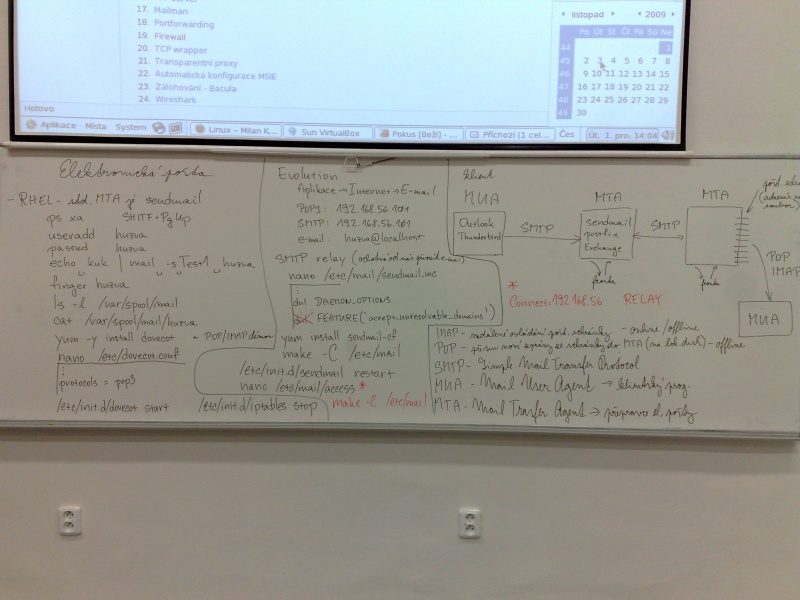 17. Mailman
18. Portforwarding
19. Firewall
20. TCP wrapper
21. Transparentní proxy
22. Automatická konfigurace MSIE
23. Zálohování - Bacula
24. Wireshark
listopad
2009
Po Út St Čt Pá So Ne
44 1
45 2 3 4 5 6 7 8
46 9 10 11 12 13 14 15
47 16 17 18 19 20 21 22
48 23 24 25 26 27 28 29
49 30
Hotovo
Aplikace Místa System
Linux – Milan K...
Sun VirtualBox
Pokus [Beží] - ...
Příchozí (1 cel...
Čes
Út, 1. pro, 14:04
Elektronická pošta
- RHEL - std. MTA je sendmail
ps xa SHIFT+PgUp
useradd huzva
passwd huzva
echo kuk | mail -s Test1 huzva
finger huzva
ls -l /var/spool/mail
cat /var/spool/mail/huzva
yum -y install dovecot ← POP/IMAP démon
nano /etc/dovecot.conf
protocols = pop3
/etc/init.d/dovecot start
/etc/init.d/iptables stop
Evolution
Aplikace → Internet → E-mail
POP3: 192.168.56.101
SMTP: 192.168.56.101
e-mail: huzva@localhost
SMTP relay
nano /etc/mail/sendmail.mc
dnl DAEMON_OPTIONS
dnl FEATURE('accept_unresolvable_domains')
yum install sendmail-cf
make -C /etc/mail
/etc/init.d/sendmail restart
nano /etc/mail/access *
make -C /etc/mail
klient
MUA
Outlook
Thunderbird
SMTP
MTA
sendmail
postfix
Exchange
fronta
SMTP
MTA
fronta
POP
IMAP
MUA
*
Connect:192.168.56 RELAY
IMAP - vzdálené ovládání pošt. schránky - online/offline
POP - přesun nové zprávy ze schránky do MTA (na lok. disk) - offline
SMTP - Simple Mail Transfer Protocol
MUA - Mail User Agent → klientský prog.
MTA - Mail Tranfer Agent → přepravce el. pošty